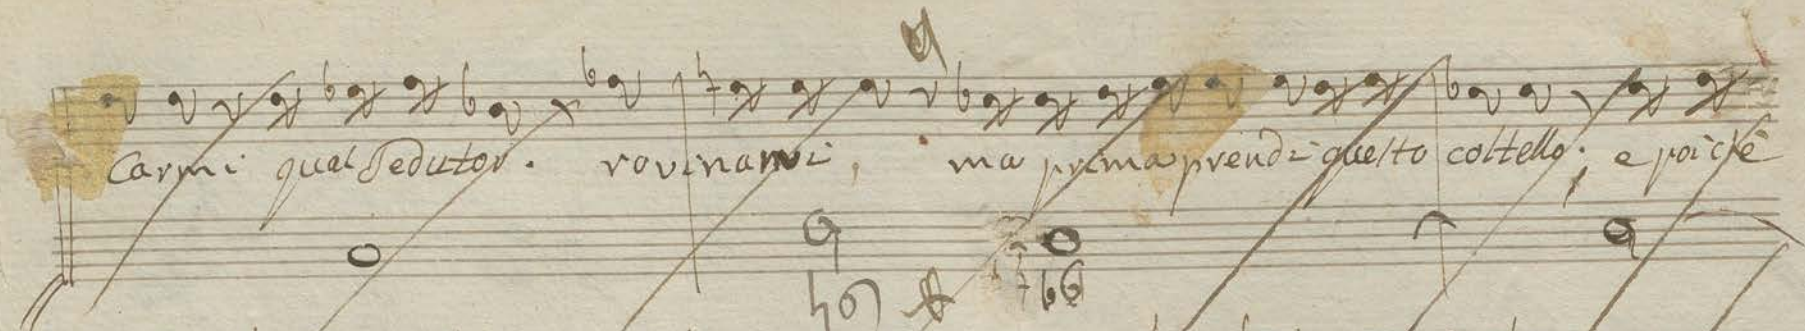 carmi qual sedutor. rovinami, ma prima prendi questo coltello; e poichè
♮6 ♭6